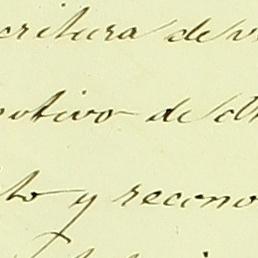 critura de v
otivo de ot
to y recono